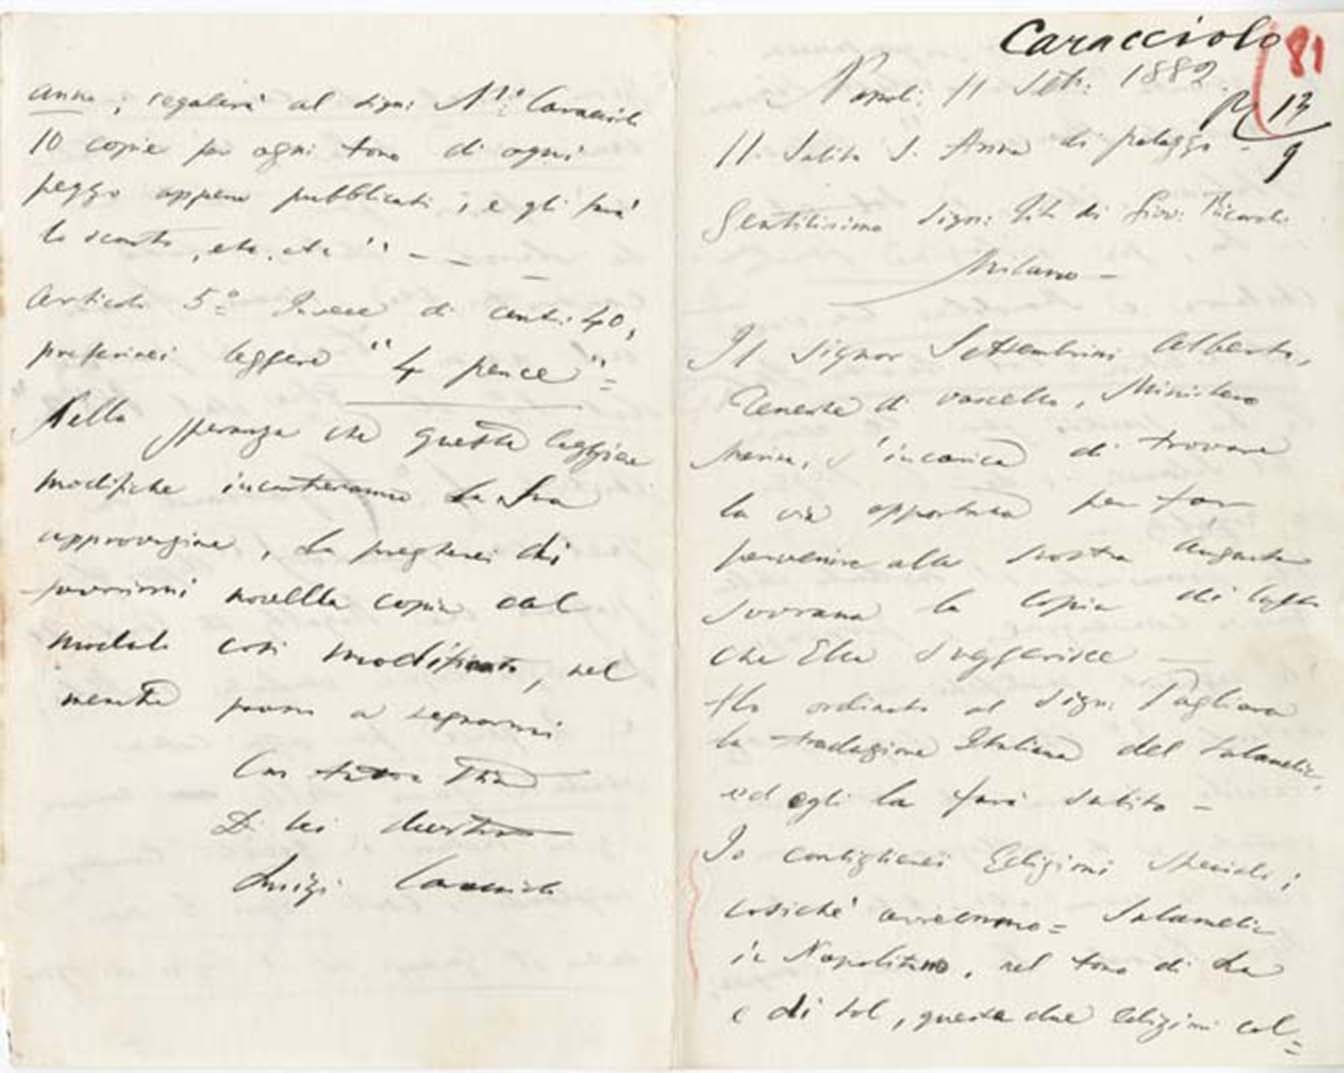 Caracciolo
81
Napoli 11 Sett: 1882.
R 13
9
11. Salita S. Anna di palazzo -
Gentilissimo Sign: Tito di Giov: Ricordi
Milano -
Il Signor Settembrini Alberto,
Tenente di vascello, Ministero
Marina, s'incarica di trovare
la via opportuna per far
pervenire alla nostra Augusta
Sovrana la copia di lusso
che Ella suggerisce -
Ho ordinato al Sign: Pagliara
la traduzione Italiana del Salamelic.
ed egli la farà subito -
Io consiglierei Edizioni speciali;
cosichè avressimo = Salamelic
in Napolitano, nel tono di La
e di sol, queste due edizioni col=
anno, regalerà al Sign: Caracciolo
10 copie per ogni tono di ogni
pezzo appena pubblicati, e gli farà
lo sconto, etc. etc" - - -
Articolo 5º Invece di cent: 40,
preferirei leggere "4 pence" =
Nella speranza che queste leggiere
modifiche incontreranno La Sua
approvazione, La pregherei di
favorirmi novella copia del
modulo così modificato, nel
mentre passo a segnarmi
Con tutta stima
Di lei devotissimo
Luigi Caracciolo